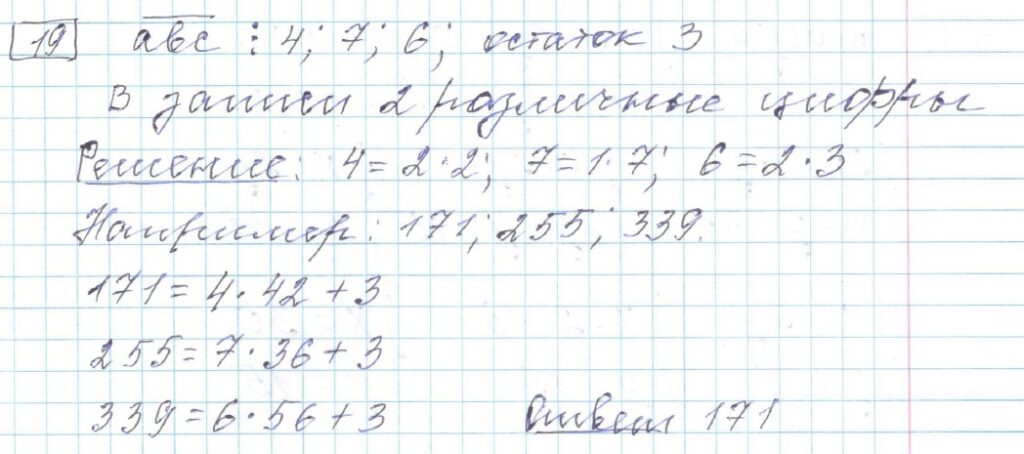 19 abc ⋮ 4; 7; 6; остаток 3
В записи 2 различные цифры
Решение: 4 = 2·2; 7 = 1·7; 6 = 2·3
Например: 171; 255; 339.
171 = 4·42 + 3
255 = 7·36 + 3
339 = 6·56 + 3 Ответ 171